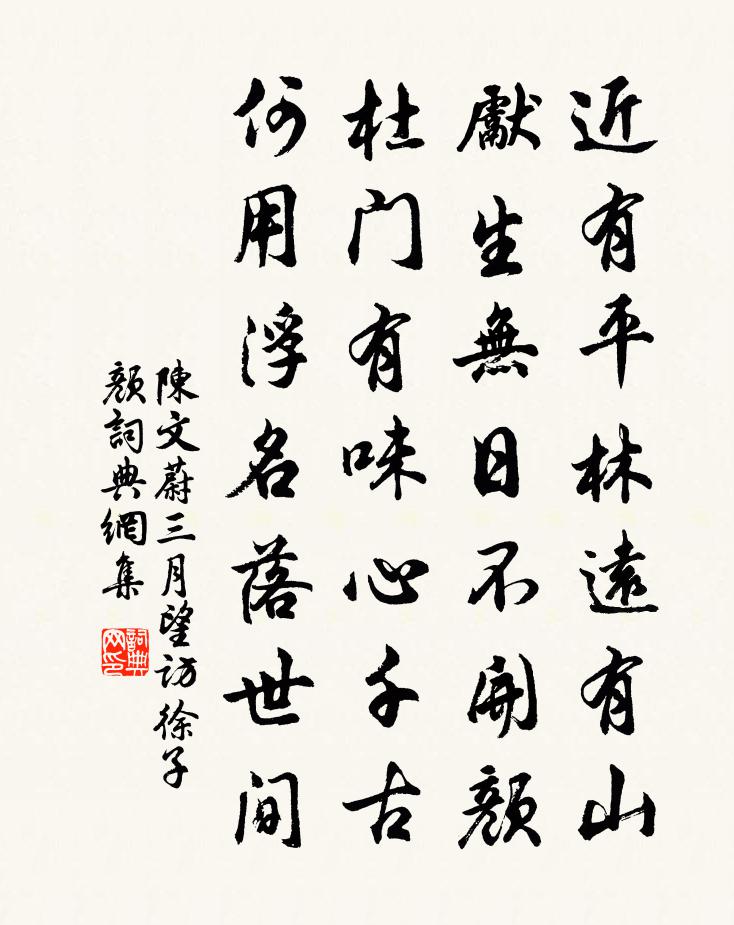 近有平林遠有山
獻生無日不開顏
杜门有味心千古
何用浮名落世间
陳文蔚三月望访徐子
顏詞典網集
詞典网印